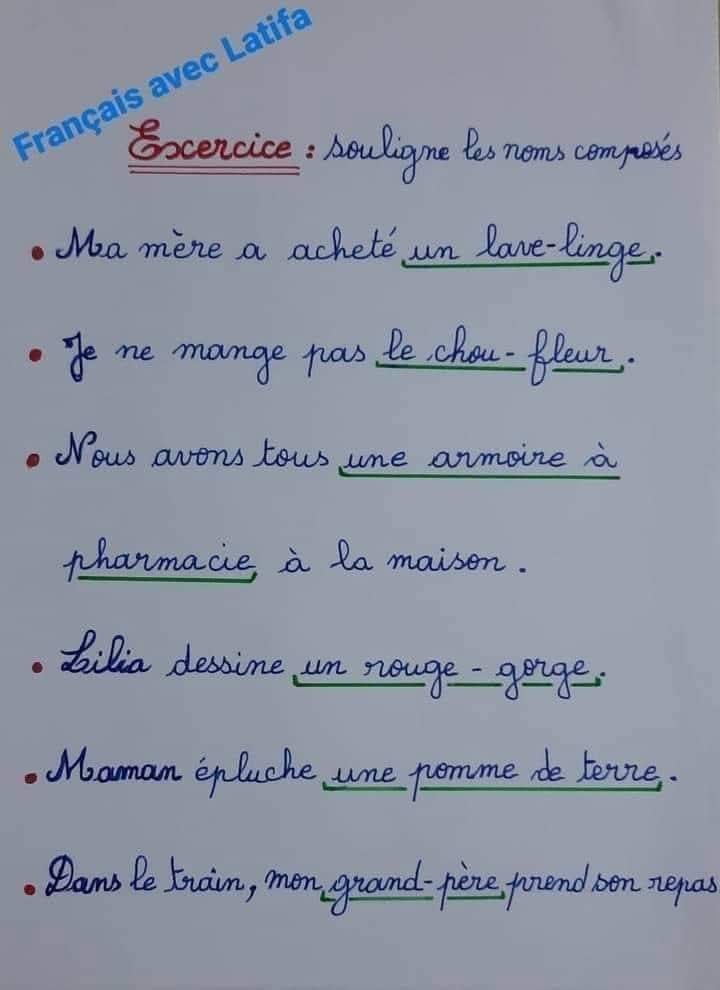 Français avec Latifa
Excercice : souligne les noms composés
• Ma mère a acheté un lave-linge.
• Je ne mange pas le chou-fleur.
• Nous avons tous une armoire à
pharmacie à la maison.
• Lilia dessine un rouge-gorge.
• Maman épluche une pomme de terre.
• Dans le train, mon grand-père prend son repas